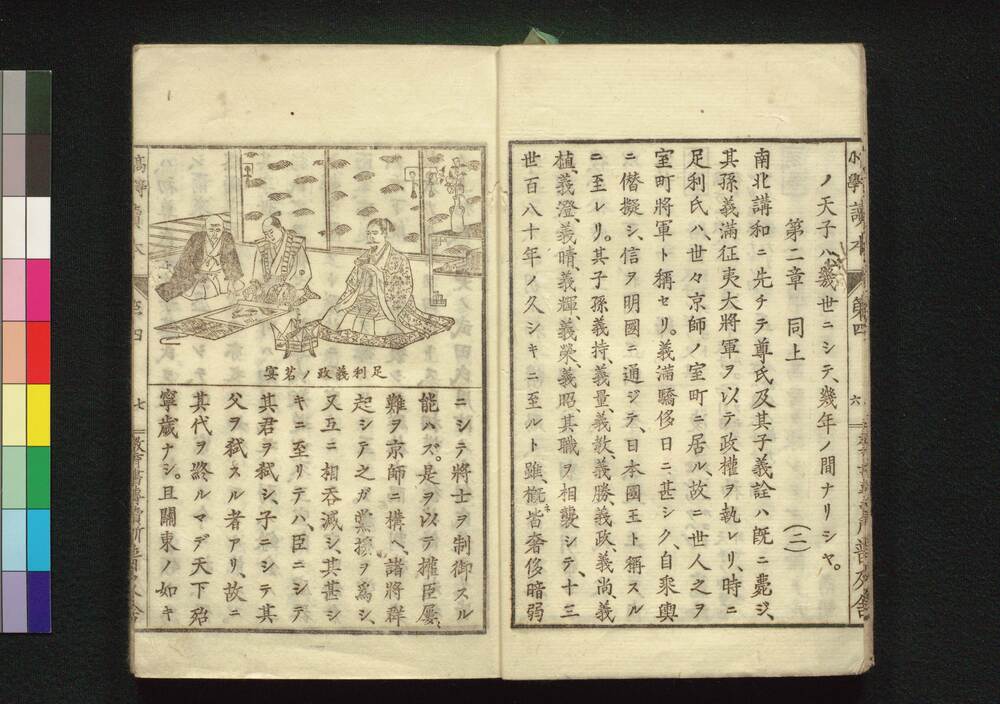 ノ天子ハ、幾世ニシテ、幾年ノ間ナリシヤ。
第二章 同上 (二)
南北講和ニ先チテ尊氏及其子義詮ハ既ニ薨ジ、
其孫義滿征夷大將軍ヲ以テ政權ヲ執レリ、時ニ
足利氏ハ、世々京師ノ室町ニ居ル、故ニ世人之ヲ
室町將軍ト稱セリ。義滿驕侈日ニ甚シク、自乘輿
ニ僭擬シ、信ヲ明國ニ通ジテ、日本國王ト稱スル
ニ至レリ。其子孫義持、義量、義教、義勝、義政、義尚、義
植、義澄、義晴、義輝、義榮、義昭、其職ヲ相襲シテ、十三
世百八十年ノ久シキニ至ルト雖、概ネ皆奢侈暗弱
第四
六
足利義政ノ茗宴
ニシテ將士ヲ制御スル
能ハズ。是ヲ以テ權臣屢、
難ヲ京師ニ構ヘ、諸將群
起シテ之ガ黨援ヲ爲シ、
又互ニ相呑滅シ、其甚シ
キニ至リテハ、臣ニシテ
其君ヲ弑シ、子ニシテ其
父ヲ弑スル者アリ、故ニ
其代ヲ終ルマデ天下殆
寧歲ナシ。且關東ノ如キ
七